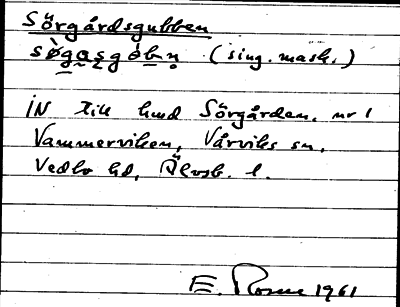 Sörgårdsgubben
(sing. mask.)
IN till hmd Sörgården, nr 1
Vammerviken, Vårviks sn,
Vedbo hd, Älvsb. l.
E. Rosén 1961